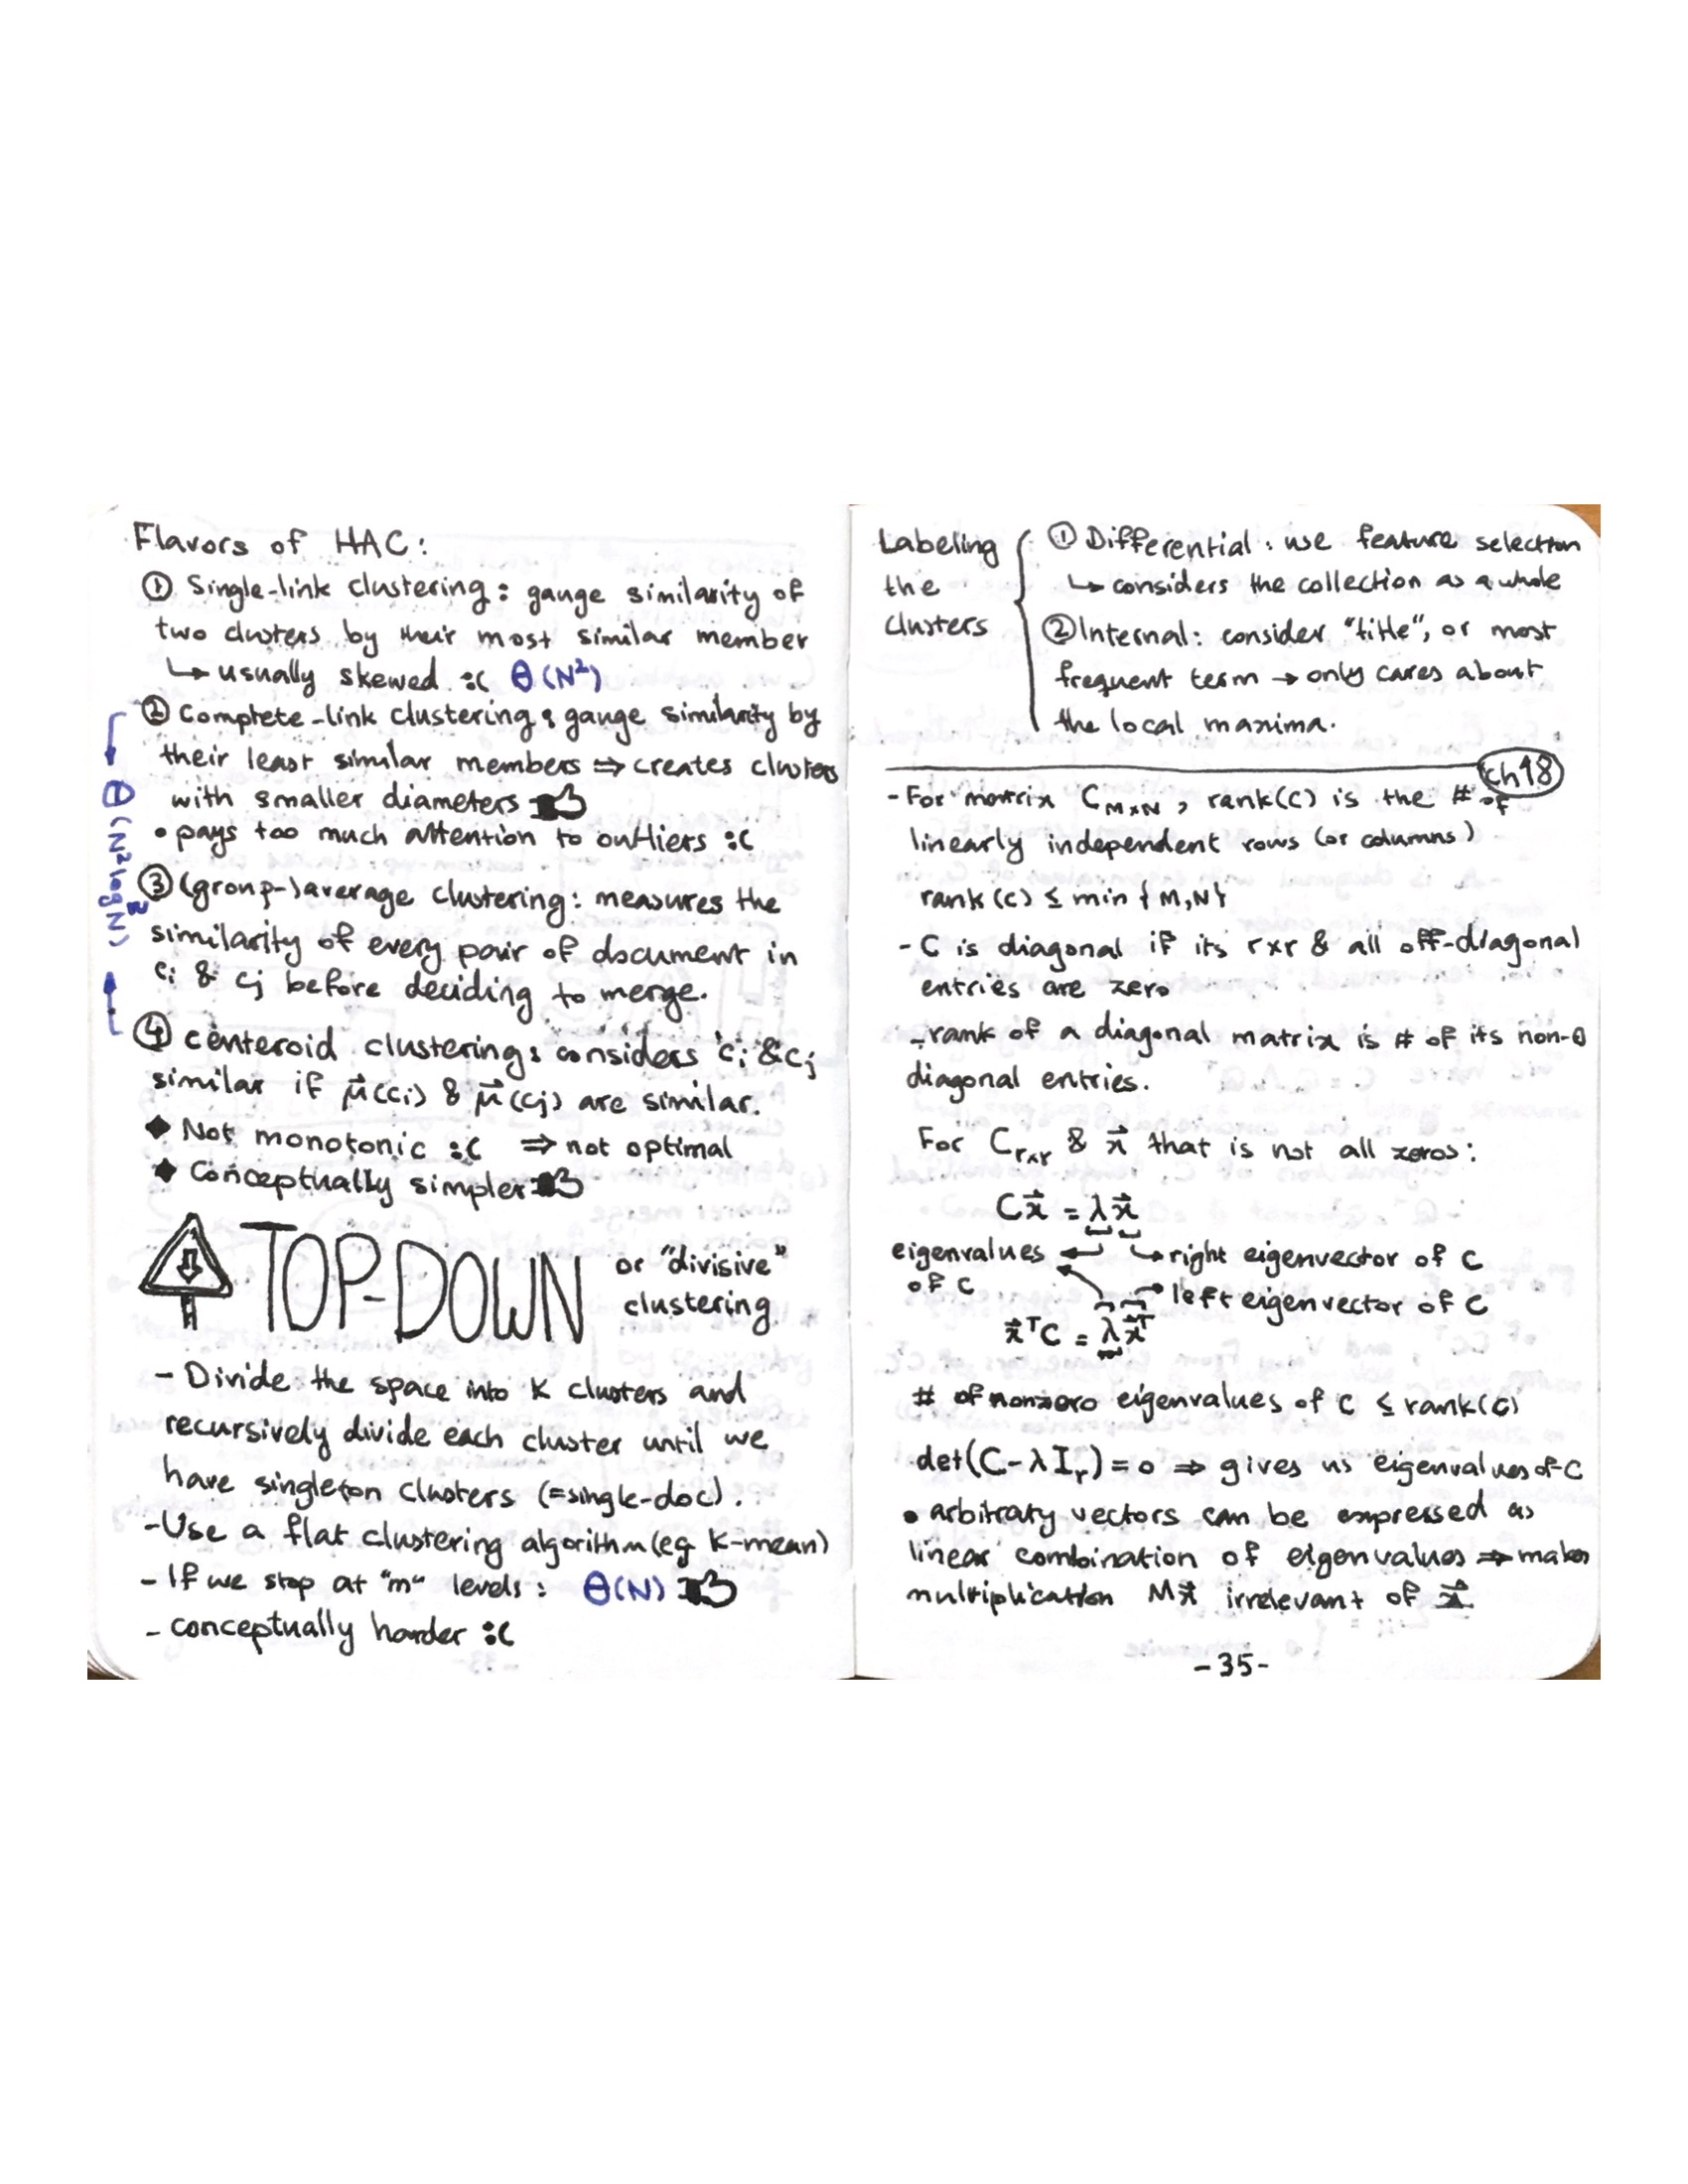 Flavors of HAC:
① Single-link clustering: gauge similarity of
two clusters by their most similar member
↳ usually skewed :( Θ(N²)
② Complete-link clustering: gauge similarity by
their least similar members ⇒ creates clusters
with smaller diameters
• pays too much attention to outliers :(
Θ(N² log N)
③ (group-)average clustering: measures the
similarity of every pair of document in
ci & cj before deciding to merge.
④ centeroid clustering: considers ci & cj
similar if μ⃗(ci) & μ⃗(cj) are similar.
◆ Not monotonic :( ⇒ not optimal
◆ Conceptually simpler
TOP-DOWN or "divisive"
clustering
- Divide the space into K clusters and
recursively divide each cluster until we
have singleton clusters (=single-doc).
- Use a flat clustering algorithm (eg K-mean)
- If we stop at "m" levels: Θ(N)
- conceptually harder :(
Labeling
the
clusters
① Differential: use feature selection
↳ considers the collection as a whole
② Internal: consider "title", or most
frequent term → only cares about
the local maxima.
ch18
- For matrix C M×N, rank(C) is the # of
linearly independent rows (or columns)
rank(C) ≤ min {M,N}
- C is diagonal if its r×r & all off-diagonal
entries are zero
- rank of a diagonal matrix is # of its non-0
diagonal entries.
For C r×r & x⃗ that is not all zeros:
Cx⃗ = λx⃗
eigenvalues ← ↳ right eigenvector of C
of C → left eigenvector of C
x⃗ᵀC = λx⃗ᵀ
# of nonzero eigenvalues of C ≤ rank(C)
det(C-λIr) = 0 ⇒ gives us eigenvalues of C
• arbitrary vectors can be expressed as
linear combination of eigenvalues ⇒ makes
multiplication Mx⃗ irrelevant of x⃗
-35-